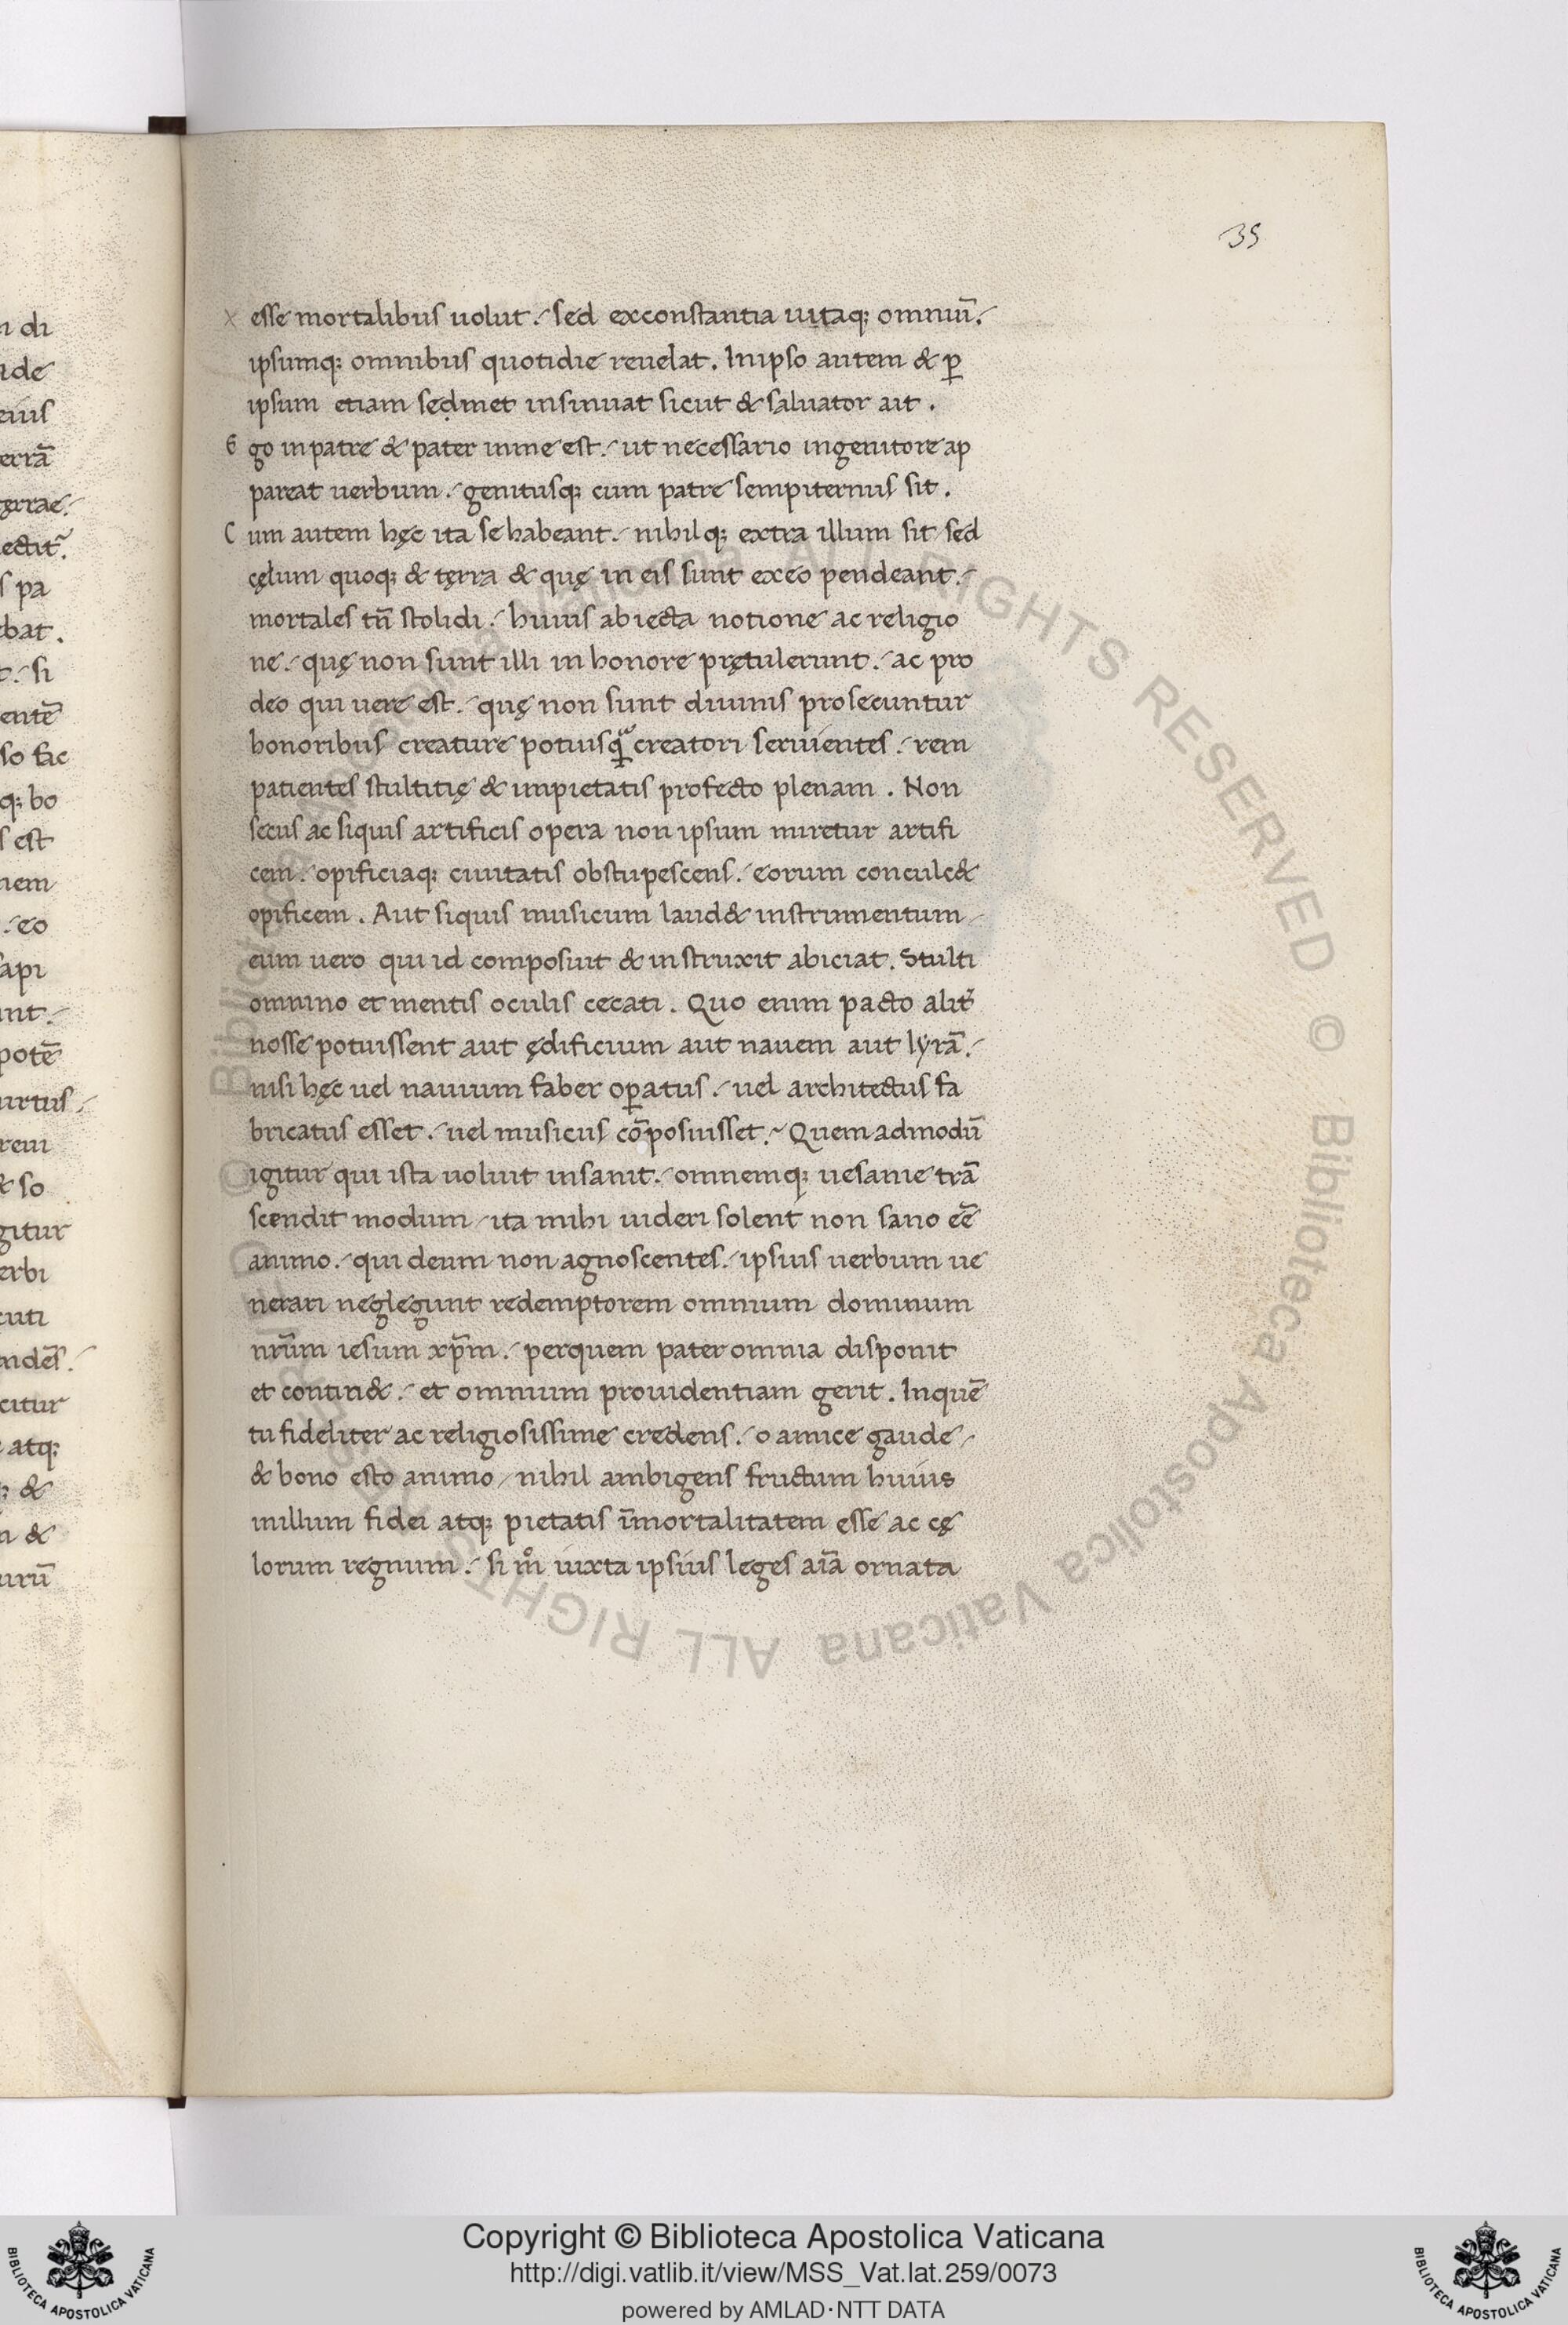 35
esse mortalibus uolut. sed exconstantia uitaq; omniū.
ipsumq; omnibus quotidie reuelat. Inipso autem & ꝑ
ipsum etiam sedmet insinuat sicut & saluator ait.
Ego inpatre & pater inme est. ut necessario ingenitore ap
pareat uerbum. genitusq; cum patre sempiternus sit.
Cum autem hęc ita se habeant. nihilq; extra illum sit sed
cęlum quoq; & tęrra & quę in eis sunt exeo pendeant.
mortales tn̄ stolidi. huius abiecta notione ac religio
ne. quę non sunt illi in honore prętulerunt. ac pro
deo qui uere est. quę non sunt diuinis prosecuntur
honoribus creature potiusꝗ creatori seruientes. rem
patientes stultitię & impietatis profecto plenam. Non
secus ac siquis artificis opera non ipsum miretur artifi
cem. opificiaq; ciuitatis obstupescens. eorum conculc&
opificem. Aut siquis musicum laud& instrumentum
eum uero qui id composuit & instruxit abiciat. Stulti
omnino et mentis oculis cecati. Quo enim pacto alit᷑
nosse potuissent aut ędificium aut nauem aut lyrā.
nisi hęc uel nauium faber oꝑatus. uel architectus fa
bricatus esset. uel musicus cōposuisset. Quem admodū
igitur qui ista uoluit insanit. omnemq; uesanie trā
scendit modum ita mihi uideri solent non sano eē
animo. qui deum non agnoscentes. ipsius uerbum ue
nerari neglegunt redemptorem omnium dominum
nr̄um iesum xp̄m. perquem pater omnia disponit
et contin&. et omnium prouidentiam gerit. Inquē
tu fideliter ac religiosissime credens. o amice gaude
& bono esto animo nihil ambigens fructum huius
inillum fidei atq; pietatis īmortalitatem esse ac cę
lorum regnum. si m̊ iuxta ipsius leges aīa ornata
Copyright © Biblioteca Apostolica Vaticana
http://digi.vatlib.it/view/MSS_Vat.lat.259/0073
powered by AMLAD·NTT DATA
BIBLIOTECA APOSTOLICA VATICANA
BIBLIOTECA APOSTOLICA VATICANA